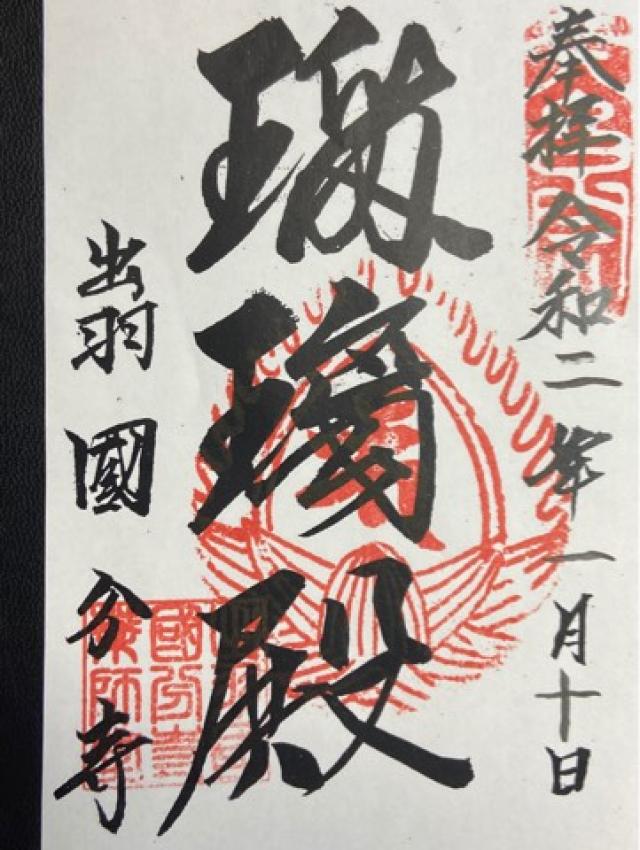 奉拝 令和二年一月十日
瑠璃殿
出羽國分寺
國分寺
薬師